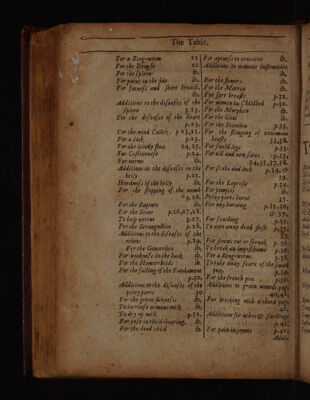 The Table.
For a Ring-worm 22
For the Dropsie 22.
For the spleen ib.
For paine in the side ib.
For fatness and short breath.
ib.
Additions to the diseases of the
spleen p.23.
For the diseases of the heart
p.23.
For the wind Colick, p.23,25.
For a itch p.23.
For the bloudy flux 24,25.
For Costiveness p.24.
For worms ib.
Additions to the diseases in the
belly p.25.
Hardness of the belly ib.
For the stopping of the womb
p.26.
For the Rupture ib.
For the Stone p.26,27,28.
To help urine p.27.
For the Strangullion p.28.
Additions to the diseases of the
reines p.29.
For the Gonorrhea ib.
For weakness in the back ib.
For the Hemorrhoids ib.
For the falling of the Fundament
p.30.
Additions to the diseases of the
privy parts 30
For the green sickness. ib.
To increase womens milk ib.
To dry up milk p.31.
For ease in child-bearing. ib.
For the dead child ib.
For aptness to conceive ib.
Additions to womens infirmities
ib.
For the flowers ib.
For the Matrix ib.
For sore breasts p.32.
For women in Childbed p.32.
For the Morphew ib.
For the Gout ib.
For the Sciatica p.33.
For the stinging of venomous
beasts 33,38.
For swellings p.33.
For old and new sores p.33,
34,35,37,38.
For scabs and itch p.34,&
39.
For the Leprosie p.34.
For pimples ib.
Privy parts burnt 35.
For any burning p.35,36,
& 39.
For scalding p.35.
To eate away dead flesh p.35.
ib.
p.36.
To break an imposthume p.36.
For a Ring-worm. p.38.
To take away scars of the small
pox. p.38.
For the french pox. p.39.
Additions to green wounds pag.
40,41.
For pricking with a thorn pag.
41.
Additions for aches & swellings
p.41.
For pain in joynts p.42.
Additi-